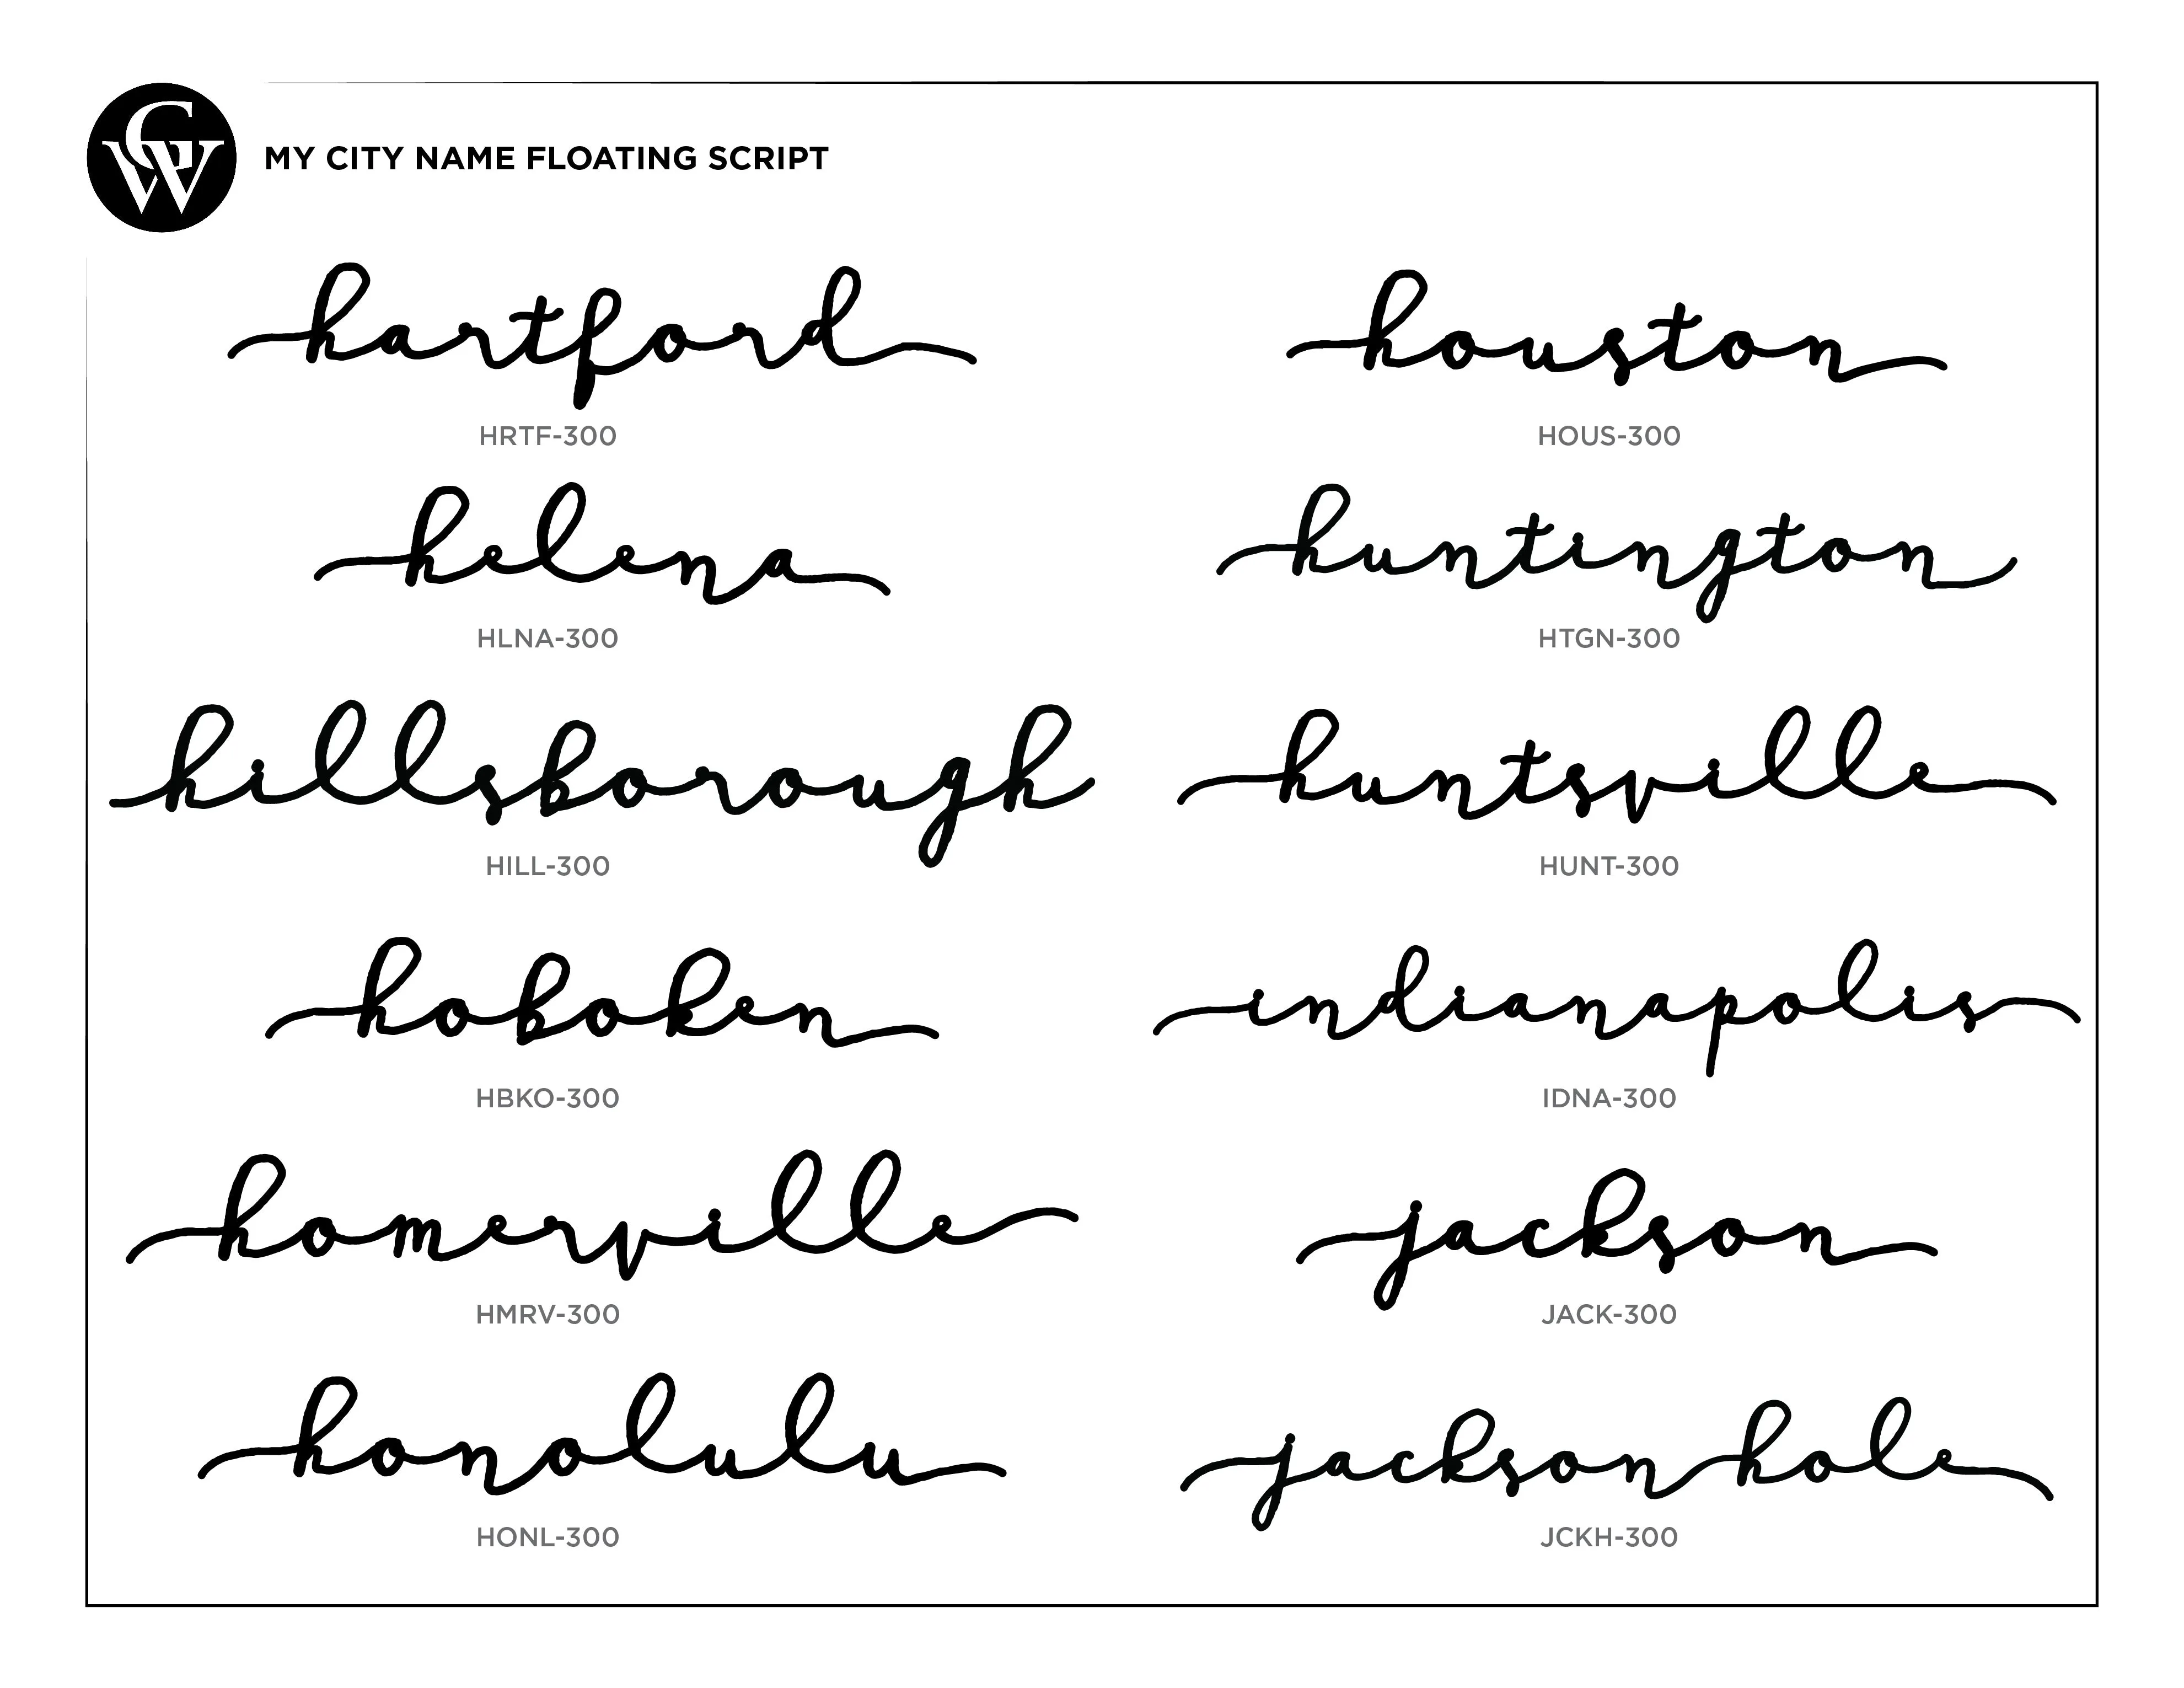 GW
MY CITY NAME FLOATING SCRIPT
hartford
HRTF-300
helena
HLNA-300
hillsborough
HILL-300
hoboken
HBKO-300
homerville
HMRV-300
honolulu
HONL-300
houston
HOUS-300
huntington
HTGN-300
huntsville
HUNT-300
indianapolis
IDNA-300
jackson
JACK-300
jackson hole
JCKH-300